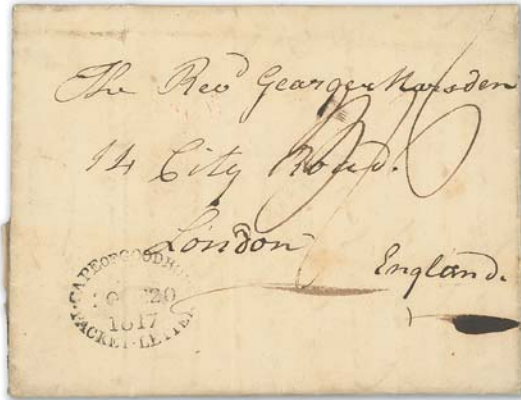 The Revd George Marsden
14 City Road.
London
England.
CAPE OF GOOD HOPE
20
1817
PACKET-LETTER